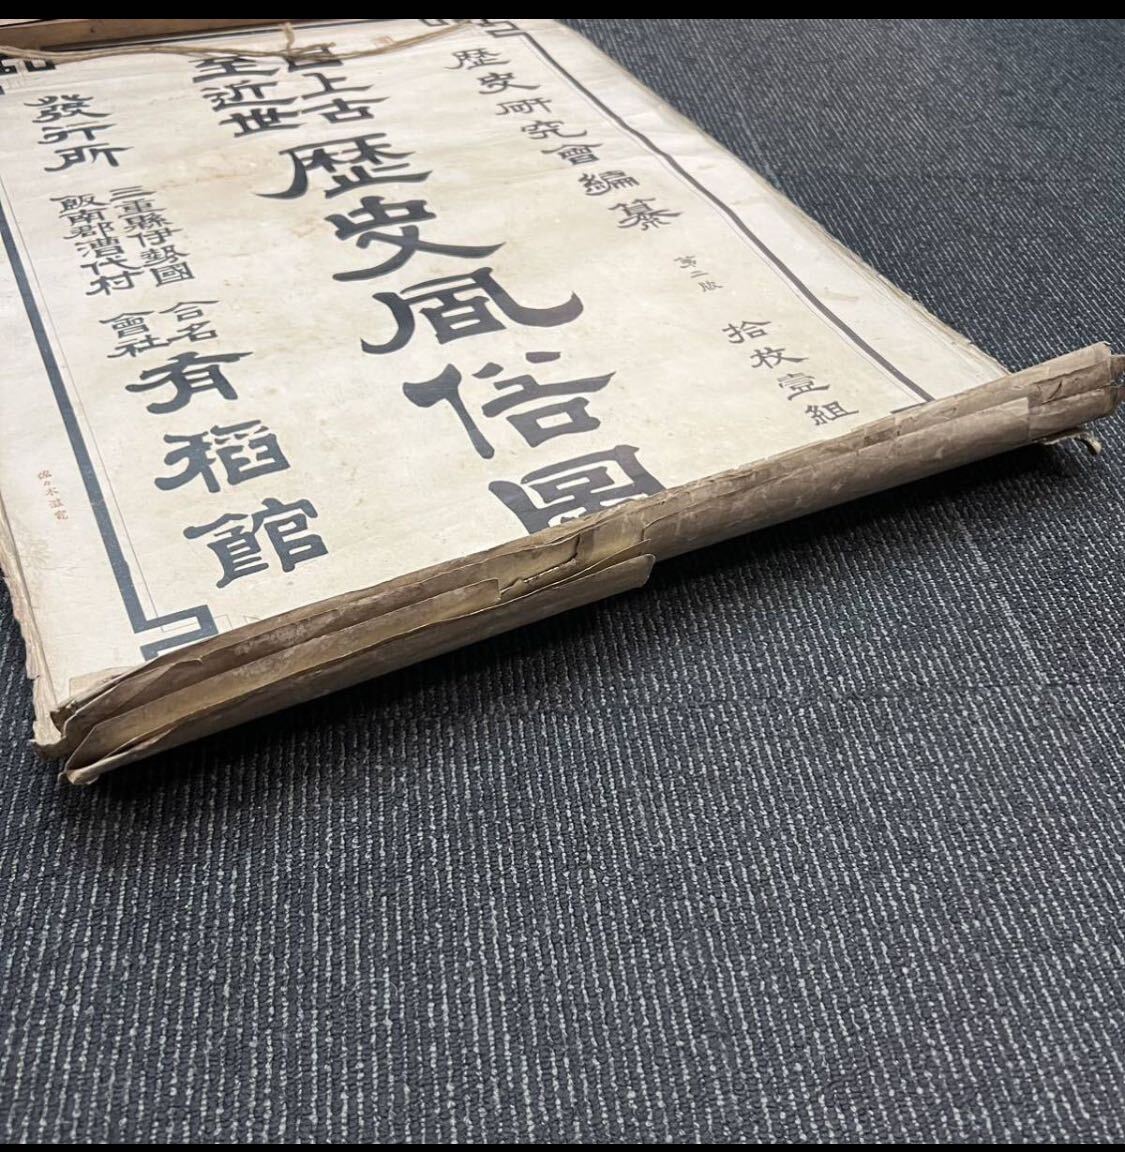 歴史研究會編纂
第二版
拾枚壹組
自上古
至近世
歴史風俗圖
發行所
三重縣伊勢國
飯南郡漕代村
合名
會社
有稻館